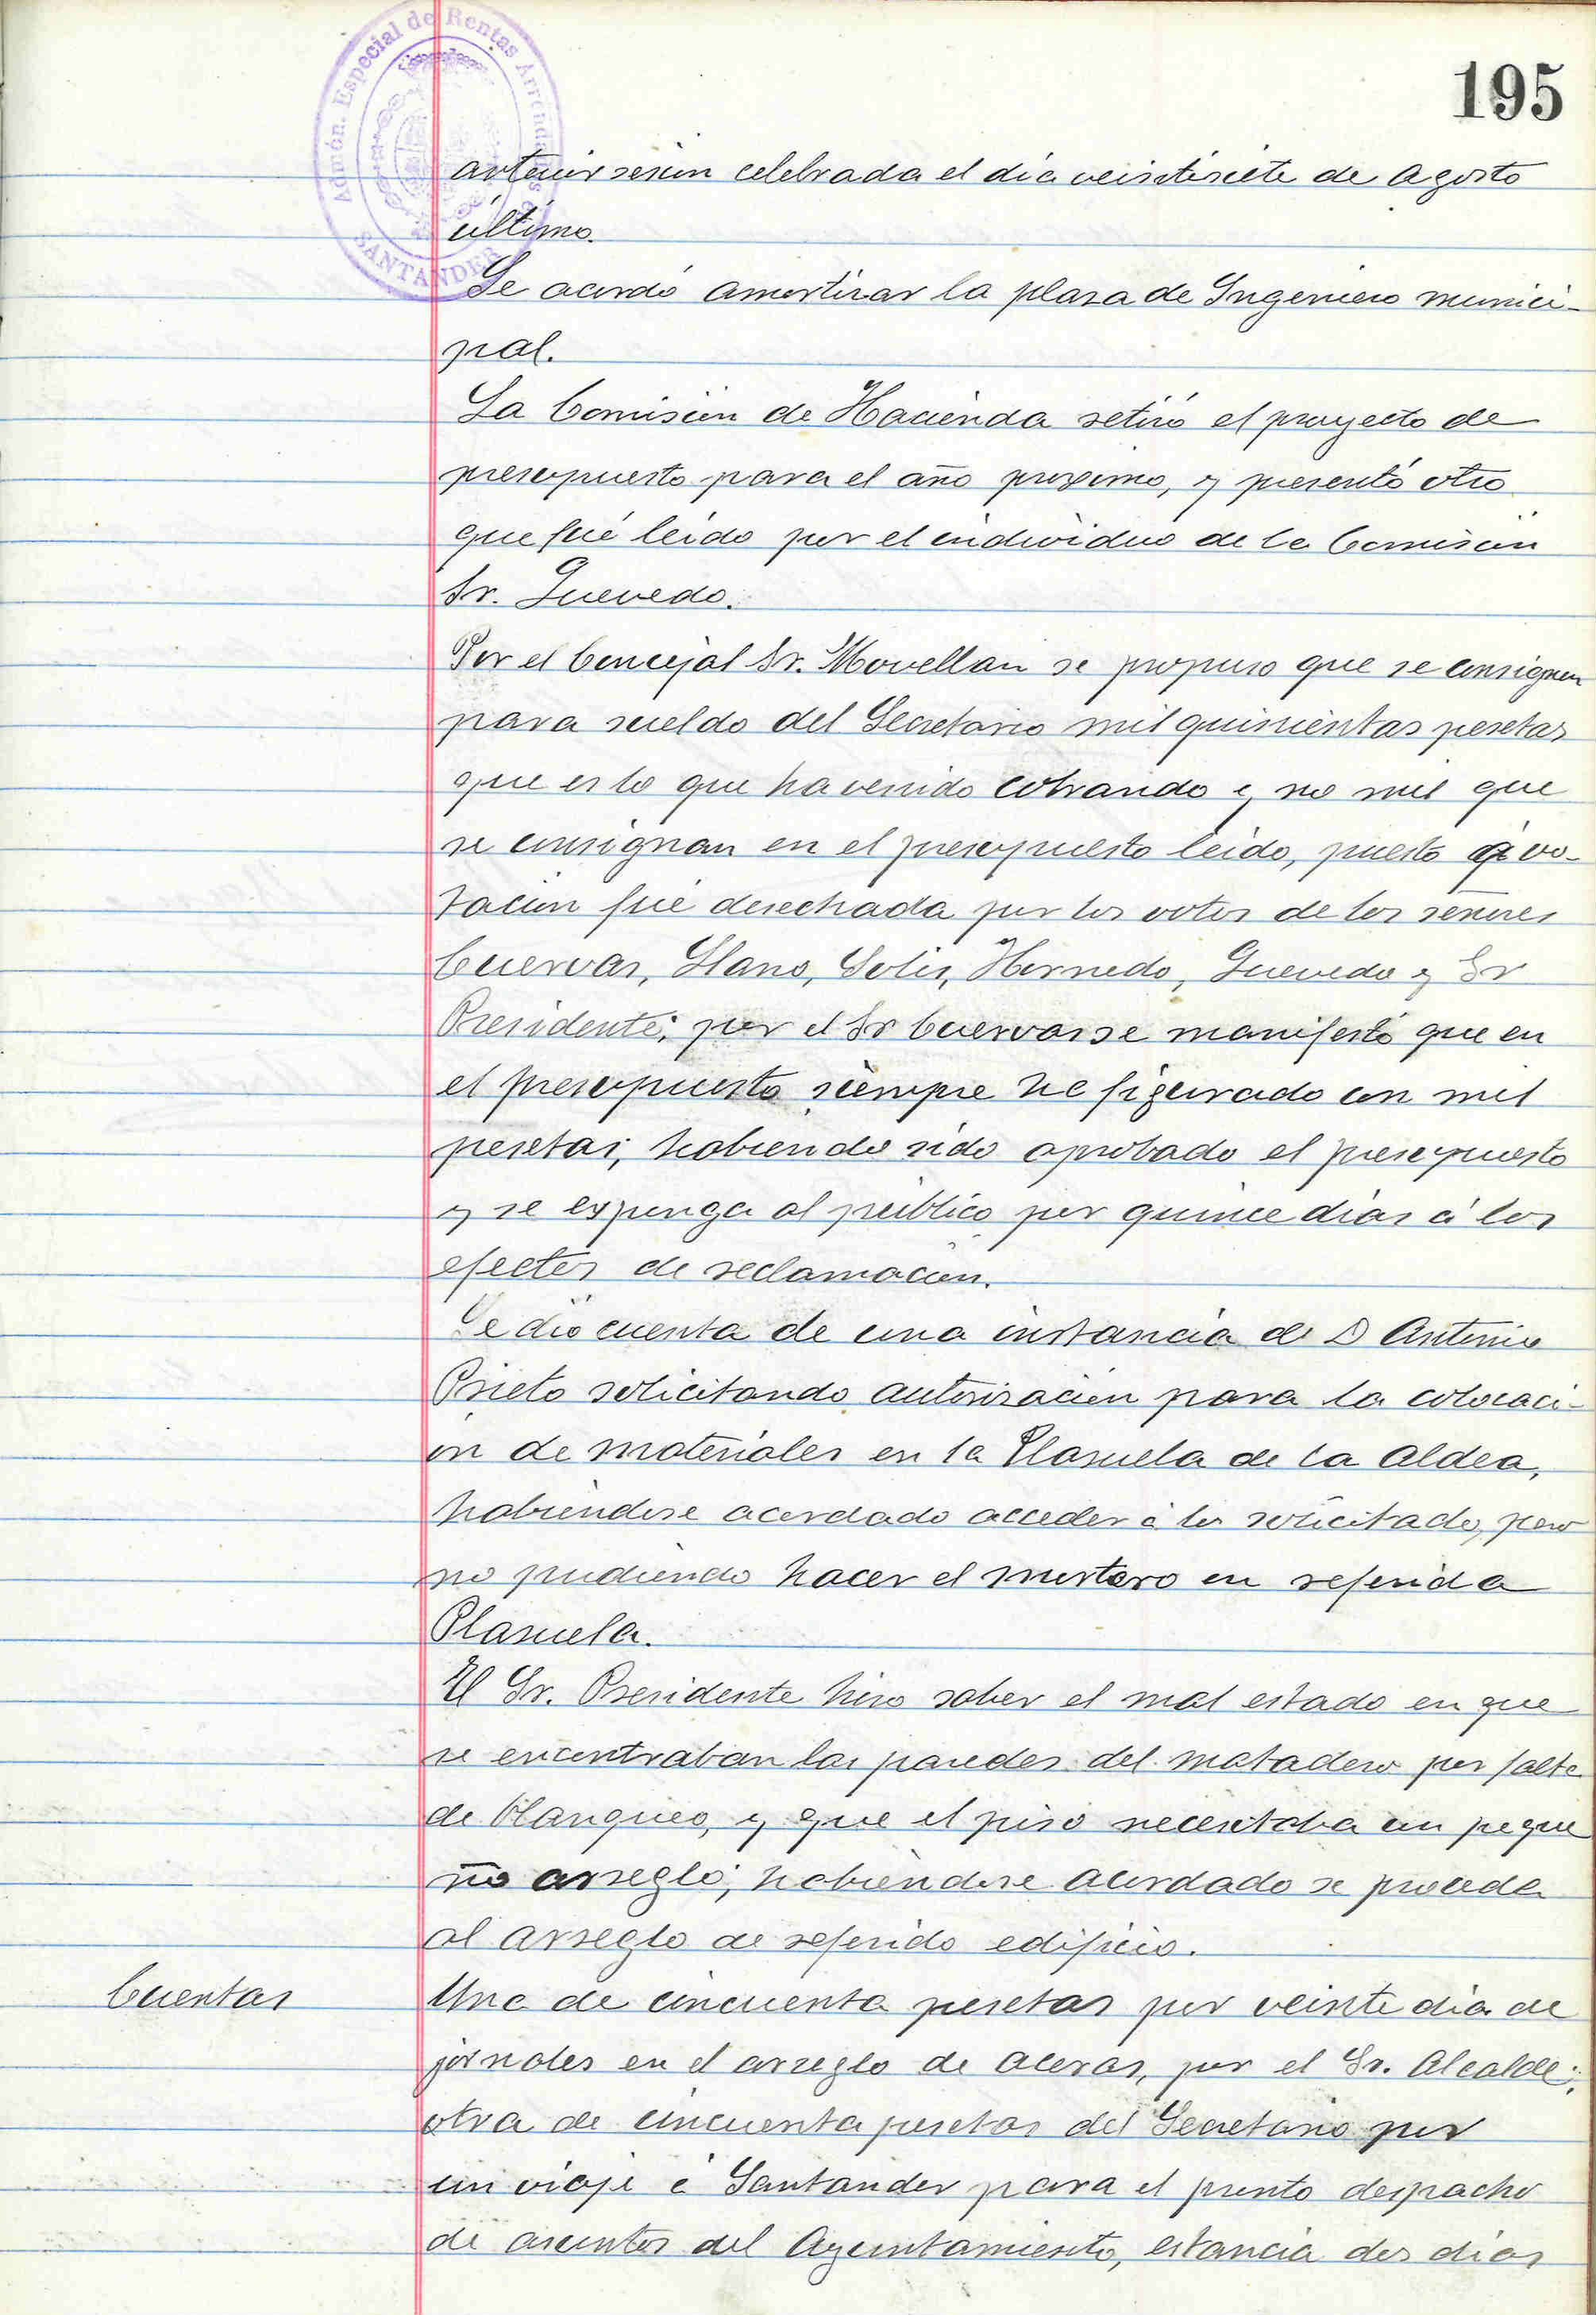 Admón. Especial de Rentas Arrendadas
SANTANDER
195
anterior sesion celebrada el dia veintisiete de Agosto
último.
Se acordó amortizar la plaza de Ingeniero munici-
pal.
La Comisión de Hacienda retiró el proyecto de
presupuesto para el año proximo, y presentó otro
que fué leido por el individuo de la Comisión
Sr. Quevedo.
Por el Concejal Sr. Movellan se propuso que se consignen
para sueldo del Secretario mil quinientas pesetas
que es lo que ha venido cobrando y no mil que
se consignan en el presupuesto leido, puesto á vo-
tación fué desechada por los votos de los señores
Cuervas, Llano, Solis, Hornedo, Quevedo y Sr
Presidente; por el Sr Cuervas se manifestó que en
el presupuesto siempre ha figurado con mil
pesetas; habiendo sido aprobado el presupuesto
y se exponga al público por quince dias á los
efectos de reclamación.
Se dió cuenta de una instancia de D Antonio
Prieto solicitando autorización para la colocaci-
ón de materiales en la Plazuela de la Aldea,
habiendose acordado acceder á lo solicitado, pero
no pudiendo hacer el mortero en referida
Plazuela.
El Sr. Presidente hizo saber el mal estado en que
se encontraban las paredes del matadero por falta
de blanqueo, y que el piso necesitaba un peque
ño arreglo; habiendose acordado se proceda
al arreglo de referido edificio.
Cuentas
Una de cincuenta pesetas por veinte dia de
jornales en el arreglo de aceras, por el Sr. Alcalde;
otra de cincuenta pesetas del Secretario por
un viaje á Santander para el pronto despacho
de asuntos del Ayuntamiento, estancia dos dias